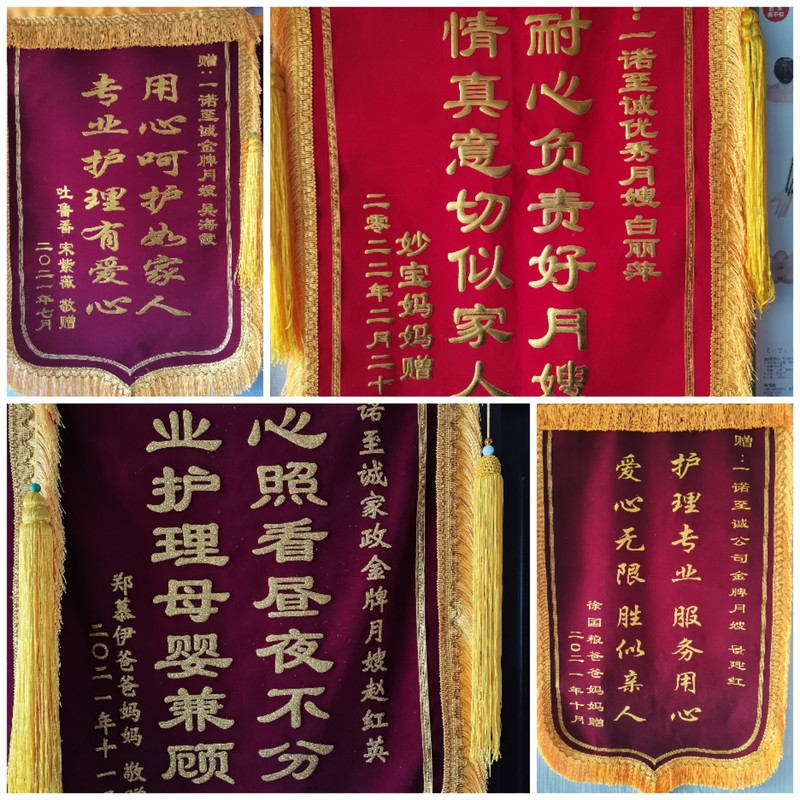 赠:一诺至诚金牌月嫂 吴海霞
用心呵护如家人
专业护理有爱心
吐鲁番 宋紫薇 敬赠
二〇二一年七月
:一诺至诚优秀月嫂 白丽萍
耐心负责好月嫂
情真意切似家人
妙宝妈妈赠
二零二二年二月二十
诺至诚家政金牌月嫂赵红英
心照看昼夜不分
业护理母婴兼顾
郑慕伊爸爸妈妈 敬赠
二〇二一年十一
赠:一诺至诚公司金牌月嫂
护理专业 服务用心
爱心无限 胜似亲人
徐国粮爸爸妈妈赠
二〇二一年十月